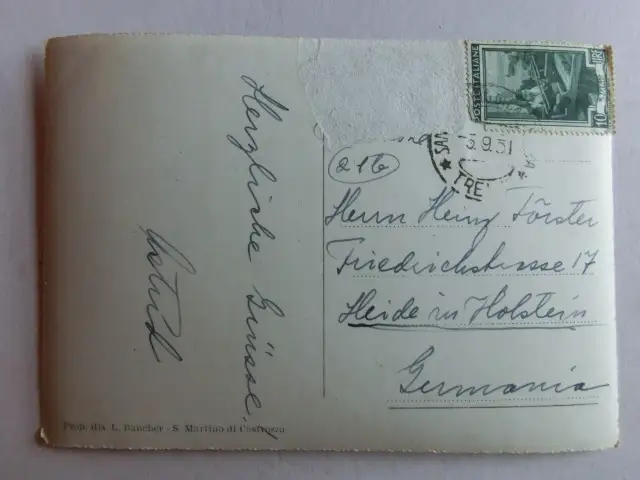 Herzliche Grüsse!
Astrid
POSTE ITALIANE
10
LIRE
SAN
-3.9.51
TRE
216
Herrn Heinz Förster
Friedrichstrasse 17
Heide in Holstein
Germania
Prop. dis. L. Bancher - S. Martino di Castrozza